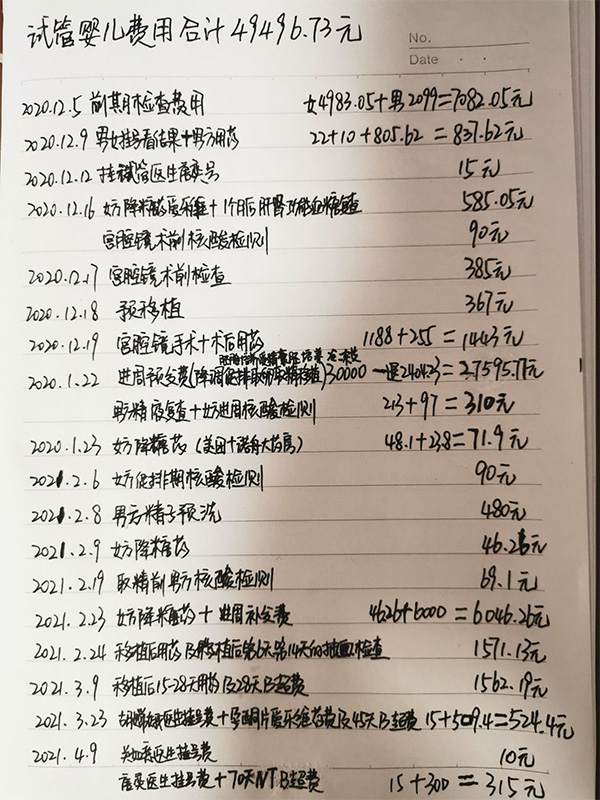 试管婴儿费用合计49496.73元
No.
Date
2020.12.5 前期检查费用 女4983.05+男2099=7082.05元
2020.12.9 男女挂号看结果+男方用药 22+10+805.62=837.62元
2020.12.12 挂试管医生号 15元
2020.12.16 女方降糖药爱乐维+1个月后肝肾功能血糖复查 585.05元
宫腔镜术前核酸检测 90元
2020.12.17 宫腔镜术前检查 385元
2020.12.18 预移植 367元
2020.12.19 宫腔镜手术+术后用药 1188+255=1443元
培养 冷冻费
2020.1.22 进周预交费(降调促排取卵取精移植)30000-退2404.23=27595.77元
男精液复查+女进周核酸检测 213+97=310元
2020.1.23 女方降糖药(美团+诺舟大药房) 48.1+23.8=71.9元
2021.2.6 女方促排期核酸检测 90元
2021.2.8 男方精子预洗 480元
2021.2.9 女方降糖药 46.26元
2021.2.19 取精前男方核酸检测 69.1元
2021.2.23 女方降糖药+进周补交费 46.26+6000=6046.26元
2021.2.24 移植后用药及移植后第6天第14天的抽血检查 1571.13元
2021.3.9 移植后15-28天用药及28天B超费 1562.19元
2021.3.23 医生挂号费+孕酮片爱乐维药费及45天B超费 15+509.4=524.4元
2021.4.9 医生挂号费 10元
医生挂号费+70天NT B超费 15+300=315元